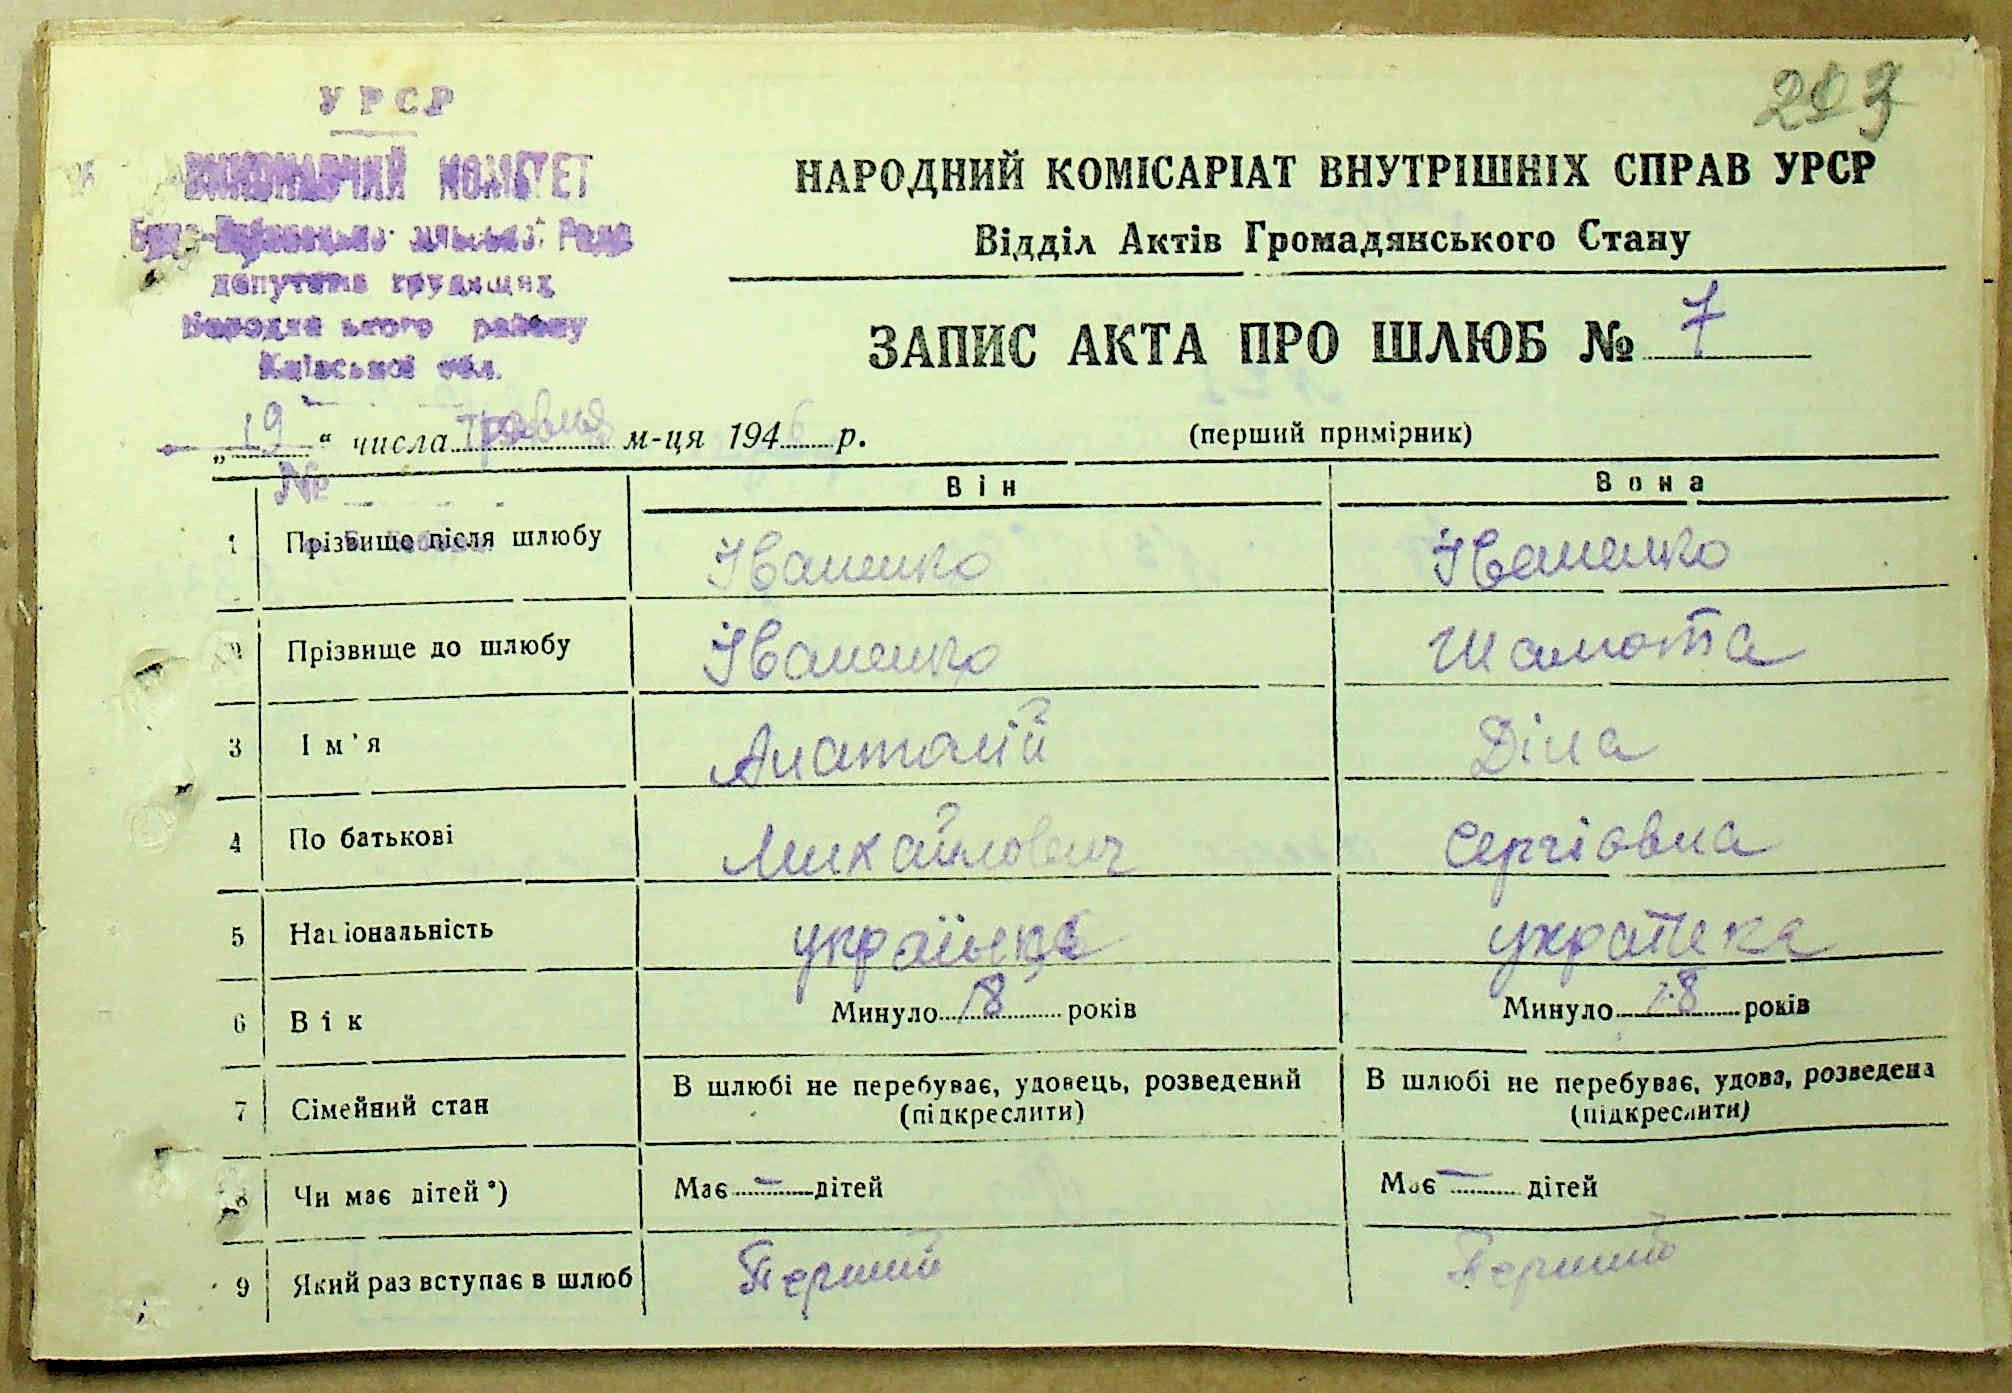 УРСР
ВИКОНАВЧИЙ КОМІТЕТ
Рада
депутатів трудящих
району
Київської обл.
НАРОДНИЙ КОМІСАРІАТ ВНУТРІШНІХ СПРАВ УРСР
Відділ Актів Громадянського Стану
ЗАПИС АКТА ПРО ШЛЮБ № 7
„19“ числа травня м-ця 1946 р.
(перший примірник)
№
Він Вона
1 Прізвище після шлюбу Іваненко Іваненко
2 Прізвище до шлюбу Іваненко Шамота
3 Ім'я Анатолій Діна
4 По батькові Михайлович Сергіовна
5 Національність українец українка
6 Вік Минуло 18 років Минуло 18 років
7 Сімейний стан В шлюбі не перебуває, удовець, розведений (підкреслити) В шлюбі не перебуває, удова, розведена (підкреслити)
8 Чи має дітей *) Має — дітей Має — дітей
9 Який раз вступає в шлюб Перший Перший